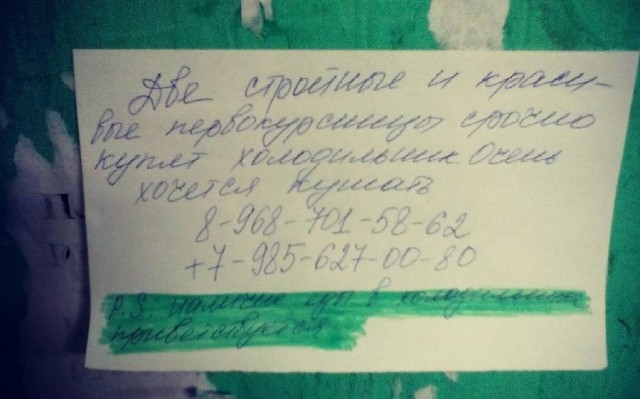 Две стройные и краси-
вые первокурсницы срочно
купят холодильник Очень
хочется кушать
8-968-701-58-62
+7-985-627-00-80
P.S. наличие еды в холодильнике
приветствуется